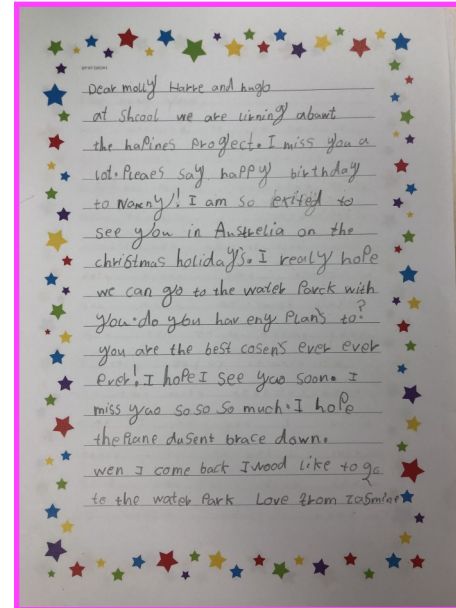 Dear molly Harre and hugo
at Shcool we are lirning abawt
the hapines proglect. I miss you a
lot. Pleaes say happy birthday
to Nanny! I am so exited to
see you in Austrelia on the
christmas holiday's. I really hope
we can go to the water Parck with
you. do you hav eny Plan's to?
you are the best cosen's ever ever
ever! I hope I see yao soon. I
miss yao so so so much. I hope
the Plane dusent brace down.
wen I come back I wood like to go
to the water Park Love from Zasmine